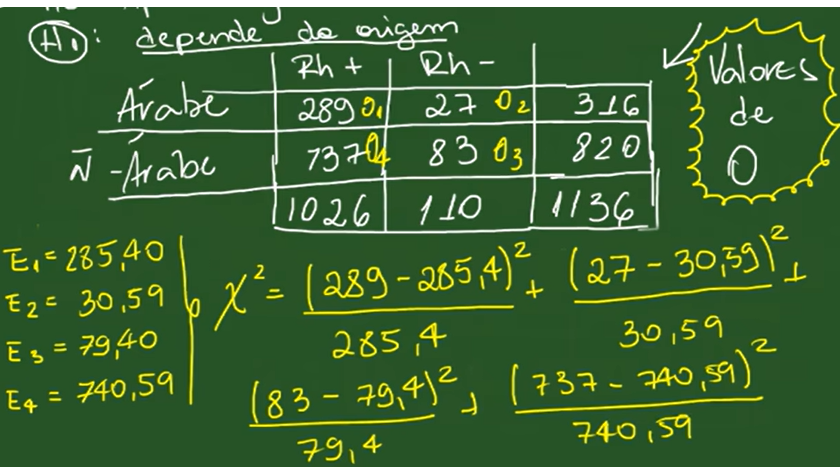 H₁: depende da origem
Rh + Rh -
Árabe 289 O₁ 27 O₂ 316
Ñ - Árabe 737 O₄ 83 O₃ 820
1026 110 1136
Valores
de
O
E₁ = 285,40
E₂ = 30,59
E₃ = 79,40
E₄ = 740,59
χ² = (289 - 285,4)² / 285,4 + (27 - 30,59)² / 30,59 +
(83 - 79,4)² / 79,4 + (737 - 740,59)² / 740,59